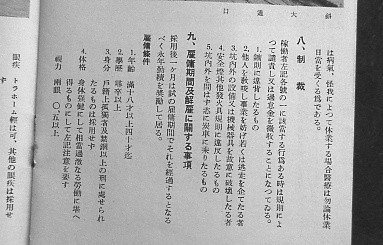 斜大通口
は病氣、怪我によつて休業する場合醫療は勿論休業
日當を受くる爲である。
八、制裁
稼働者左記各號の一に該當する行爲ある時は規則によ
つて譴責し又は過怠金を徵收することになつてゐる。
1、鑛則に違背したるもの
2、他人を敎唆し事業を妨げ若くは逃走を企てたる者
3、坑內外の設備又は機械器具を故意に破壞したる者
4、安全燈其他發火具規則に違反したるもの
5、坑內外を問はず恣に炭車に乘りたるもの
九、雇傭期間及解雇に關する事項
採用後一ケ月は試の雇傭期間でそれを經過するとなる
べく永年勤續を獎勵して居る。
雇傭條件
1、年齡 滿十八才以上四十才迄
2、學歷 尋卒以上
3、身分 戶籍上孤獨者及禁錮以上の刑に處せられ
たるものは採用せず
4、體格 身体强健にして相當過激なる勞働に堪へ
得るものにして左記注意を要す
視力 兩眼〇、五以上
眼疾 トラホーム輕は可、其他の眼疾は採用せ